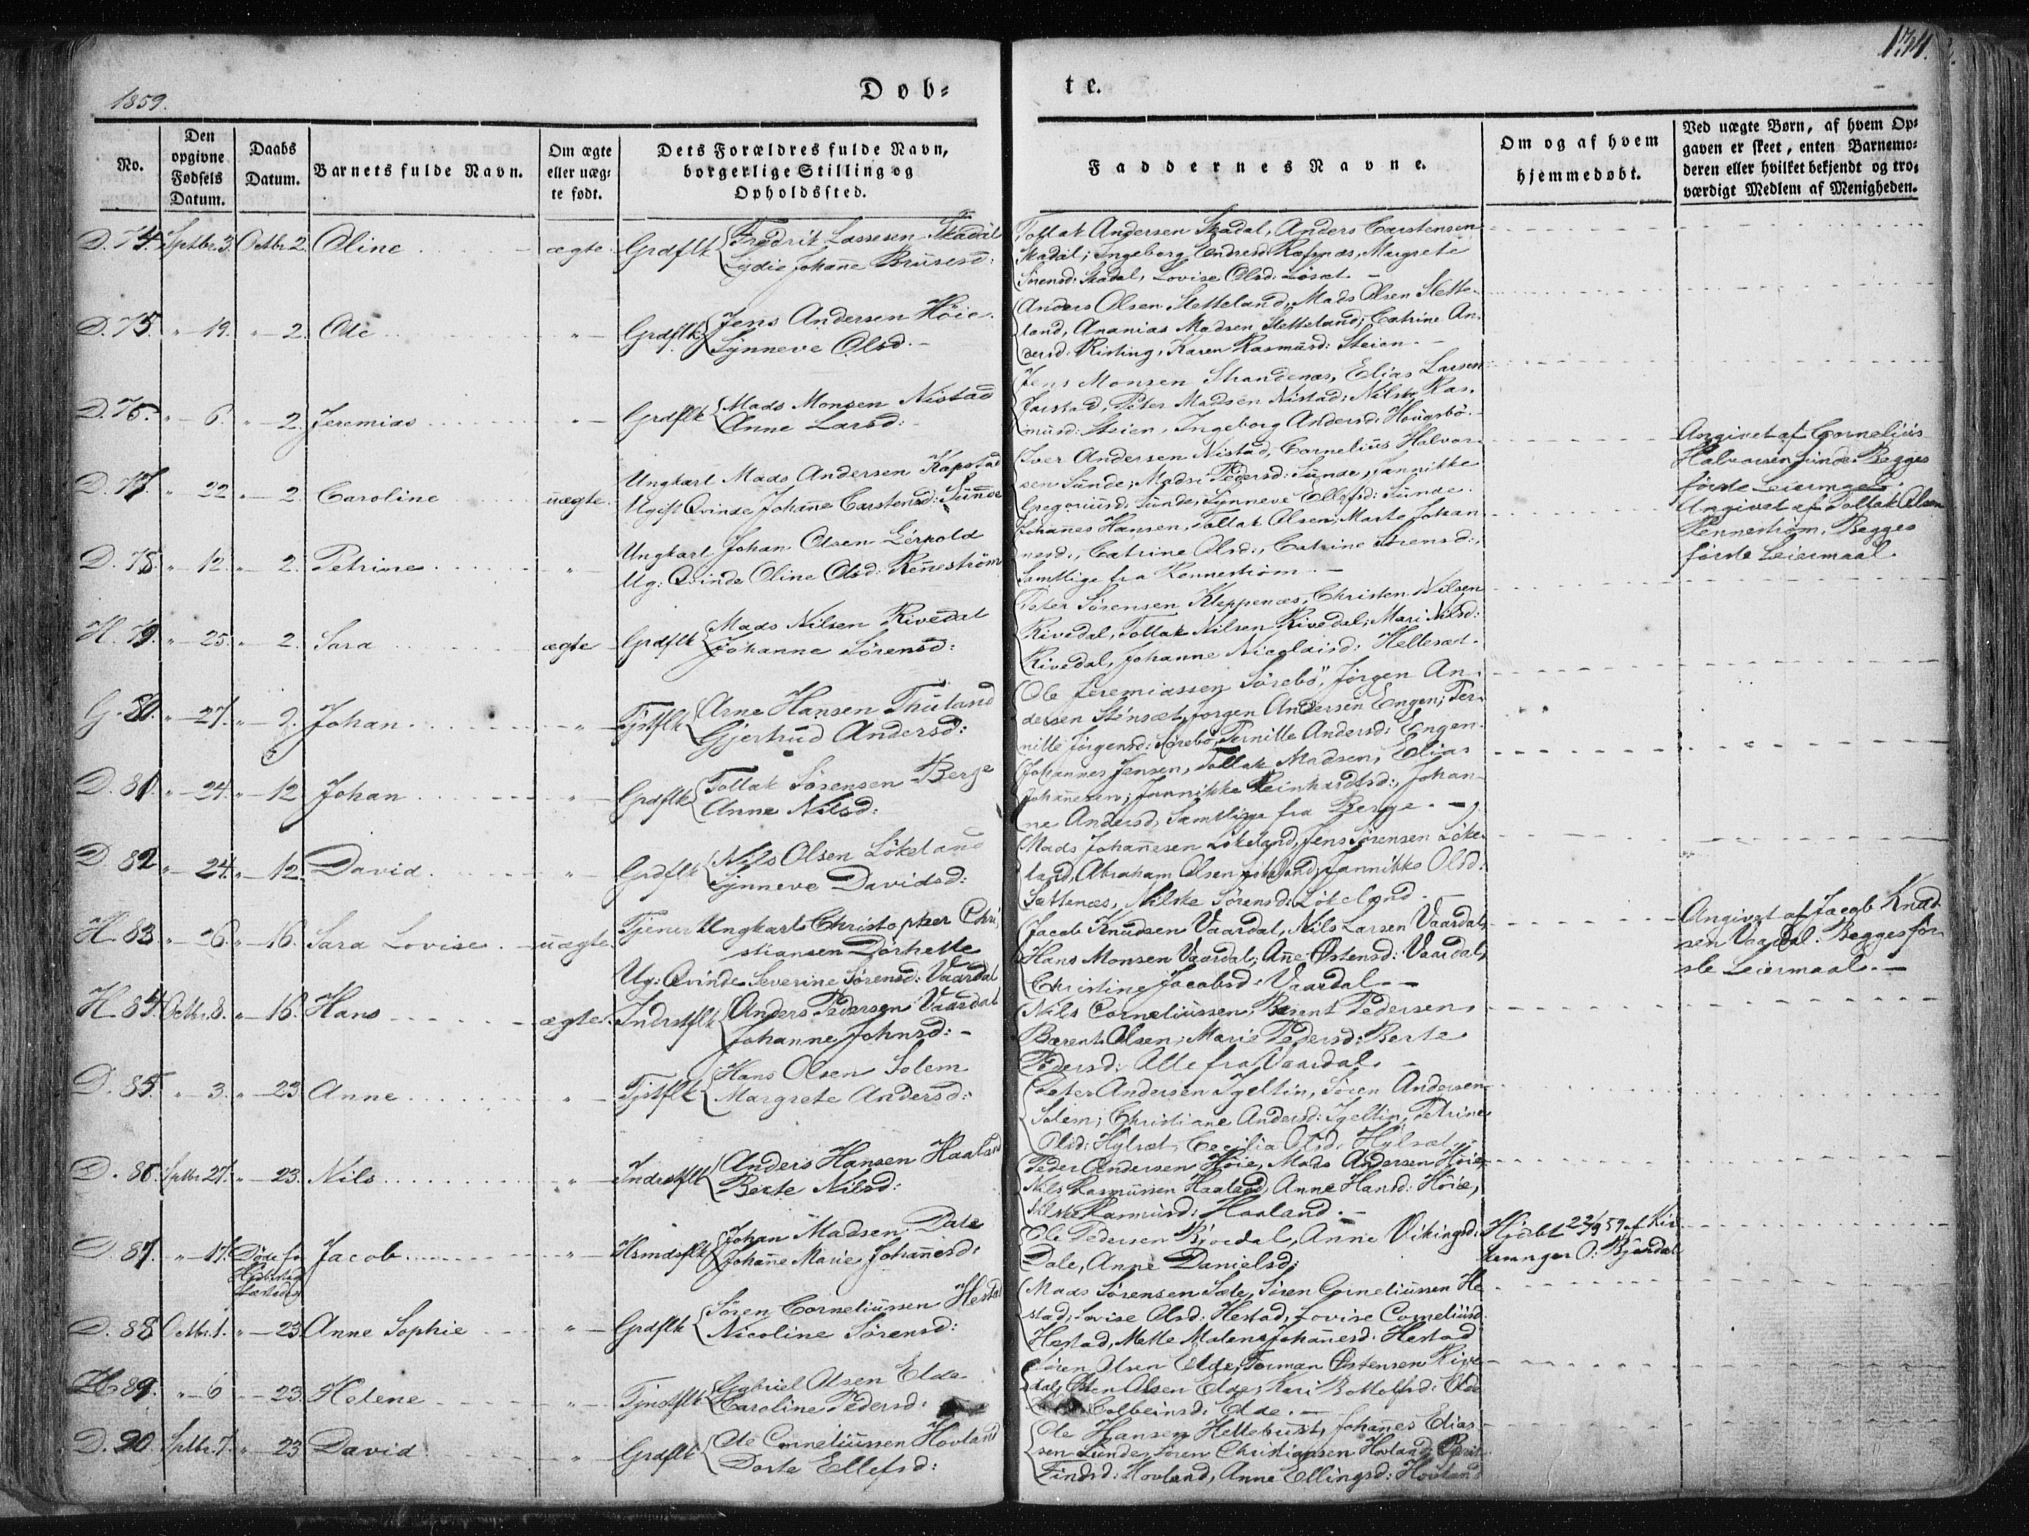 1859.
Døb=
te.
134.
No.
Den opgivne Fødsels Datum.
Daabs Datum.
Barnets fulde Navn.
Om ægte eller uæg- te født.
Dets Forældres fulde Navn, borgerlige Stilling og Opholdssted.
Faddernes Navne.
Om og af hvem hjemmedøbt.
Ved uægte Børn, af hvem Op- gaven er skeet, enten Barnemo- deren eller hvilket bekjendt og tro- værdigt Medlem af Menigheden.
D. 74. Sptbr. 3. Octbr 2. Oline ægte Grdflk Fredrik Lassesen Skadal
Lydie Johañe Brüsesd:
Tollak Andersen Skadal, Anders Carstensen
Skadal; Ingeborg Endresd: Refsnæs, Margrete
Sørensd: Skadal, Lovise Olsd:
D. 75. " 19. " 2. Ole " Grdflk Jens Andersen Höie
Synneve Olsd.
Anders Olsen Stetteland, Mads Olsen Stette-
land, Ananias Madsen Stetteland; Catrine An-
dersd: Risting, Karen Rasmüsd: Steien.
D. 76. " 6. " 2. Jeremias " Grdflk Mads Monsen Nistad
Anne Larsd:
Jens Monsen Strandenæs, Elias Larsen
Farstad, Peter Madsen Nistad; Nilske Ras-
müsd: Steien, Ingeborg Andersd: Hougsbö.
D. 77. " 22 " 2 Caroline uægte. Ungkarl Mads Andersen Kapstad
Ugift Qvinde Johañe Carstensd: Sünde
Iver Andersen Nistad, Cornelius Halvor-
sen Sünde; Madsi Pedersd: Sünde, Jannikke
Gregoriusd: Sünde, Synneve Ellefsd: Sünde.
Angivet af Cornelius
Halvorsen Sünde. Begges
første Leiermaal.
D. 78. " 12. " 2. Petrine " Ungkarl Johan Olsen
Ug: Qvinde Oline Olsd: Reñeström
Johanes Hansen, Tollak Olsen, Marte Johan
nesd:, Catrine Olsd:, Catrine Sörensd:,
Samtlige fra Renneström.
Angivet af Tollak Olsen
Renneström. Begges
første Leiermaal.
H. 79. " 25. " 2. Sara ægte Grdflk Mads Nilsen Rivedal
Johanne Sörensd:
Peter Sörensen Kleppenæs, Christen Nilsen
Rivedal, Tollak Nilsen Rivedal; Mari Nilsd:
Rivedal, Johanne Nicolaisd: Hellesæt.
G. 80. " 27. " 9. Johan " Tjstflk Arne Hansen Thuland
Gjertrud Andersd:
Ole Jeremiassen Sörebö, Jörgen An-
dersen Jörgen Andersen Engen; Per-
nille Jörgensd: Sörebö, Pernille Andersd: Engen.
D. 81. " 24. " 12. Johan " Grdflk Tollak Sörensen Berge
Anne Nilsd:
Johannes Jensen, Tollak Madsen, Elias
Johañesen; Jannikke Reinhardtsd:, Johan-
ne Andersd, Samtlige fra Berge.
D. 82 " 24. " 12. David " Grdflk Nils Olsen Lökeland
Synneve Davidsd:
Mads Johañesen Lökeland, Jens Sörensen Löke-
land, Abraham Olsen Jannikke Olsd:
Nilske Sörensd: Lökeland.
H. 83 " 26 " 16. Sara Lovise uægte Tjener Ungkarl Christopher Chri-
stiansen
Ug: Qvinde Severine Sörensd: Vaardal
Jacob Knudsen Vaardal, Nils Larsen Vaardal,
Hans Monsen Vaardal; Añe Östensd: Vaardal,
Christine Jacobsd: Vaardal
Angivet af Jacob Knud-
sen Vaardal. Begges før-
ste Leiermaal.
H. 84. Octbr. 8. " 16. Hans ægte. Indrstflk Anders Pedersen Vaardal
Johanne Johnsd:
Nils Corneliussen, Berent Pedersen,
Berent Olsen; Marie Pedersd: Berte
Pedersd: Alle fra Vaardal.
D. 85. " 3. " 23. Anne " Tjstflk Hans Olsen Solem
Margrete Andersd:
Peter Andersen Igeltin, Sören Andersen
Solem; Christiane Andersd: Igeltin, Petrine
Olsd: Hylsæt, Cecilia Olsd: Hylsæt.
D. 86. Sptbr 27. " 23. Nils " Indrstflk Anders Hansen Haaland
Berte Nilsd:
Peder Andersen Höie, Mads Andersen Höie,
Nils Rasmussen Haaland; Anne Hansd: Höie,
Nilske Rasmusd: Haaland.
D. 87. " 17. Döde før Jacob " Hsmdsflk Johan Madsen Dale
Johañe Marie Johañesd:
Ole Pedersen Anne Vikingsd:
Dale, Anne Danielsd:
Hjdöbt af Kir-
D. 88 Octbr. 1. " 23. Anne Sophie " Grdflk Sören Corneliüssen Hestad
Nicoline Sörensd:
Mads Sörensen Sæle, Sören Corneliüssen He-
stad; Lovise Olsd: Hestad, Lovise Corneliusd:
Hestad, Mette Malene Johañesd: Hestad
H. 89. " 6 " 23. Helene " Tjnstflk Gabriel Olsen Elde
Caroline Pedersd:
Sören Olsen Elde, Torman Östensen Rive-
dal, Östen Olsen Elde; Kari Bottolfsd: Elde
Colbeinsd: Elde.
D. 90. Sptbr. 7. " 23 David " Grdflk Ole Corneliüssen Hovland
Dorte Ellefsd:
Ole Hansen Hellebust, Johañes Elias
sen Sünde, Sören Christiansen Hovland; Berit
Findsd: Hovland, Anne Ellingsd: Hovland